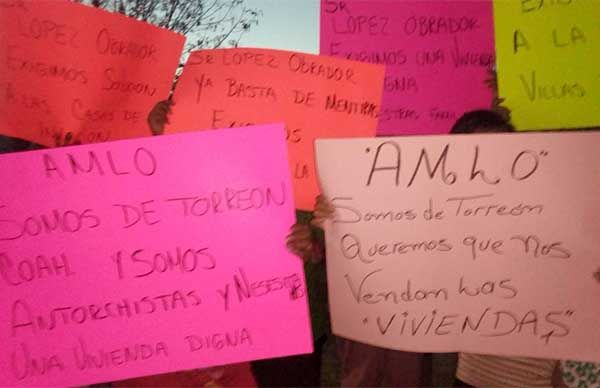 SR
LOPEZ OBRADOR
EXIGIMOS SOLUCION
A LAS CASAS DE
INVACION
SR LOPEZ OBRADOR
YA BASTA DE MENTIRAS
EXIGIMOS
LA
SR
LOPEZ OBRADOR
EXIGIMOS UNA VIVIENDA
DIGNA
A LA
VILLAS
AMLO
SOMOS DE TORREON
COAH. Y SOMOS
ANTORCHISTAS Y
UNA VIVIENDA DIGNA
"AMLO"
Somos de Torreón
Queremos que nos
Vendan Las
"VIVIENDAS"